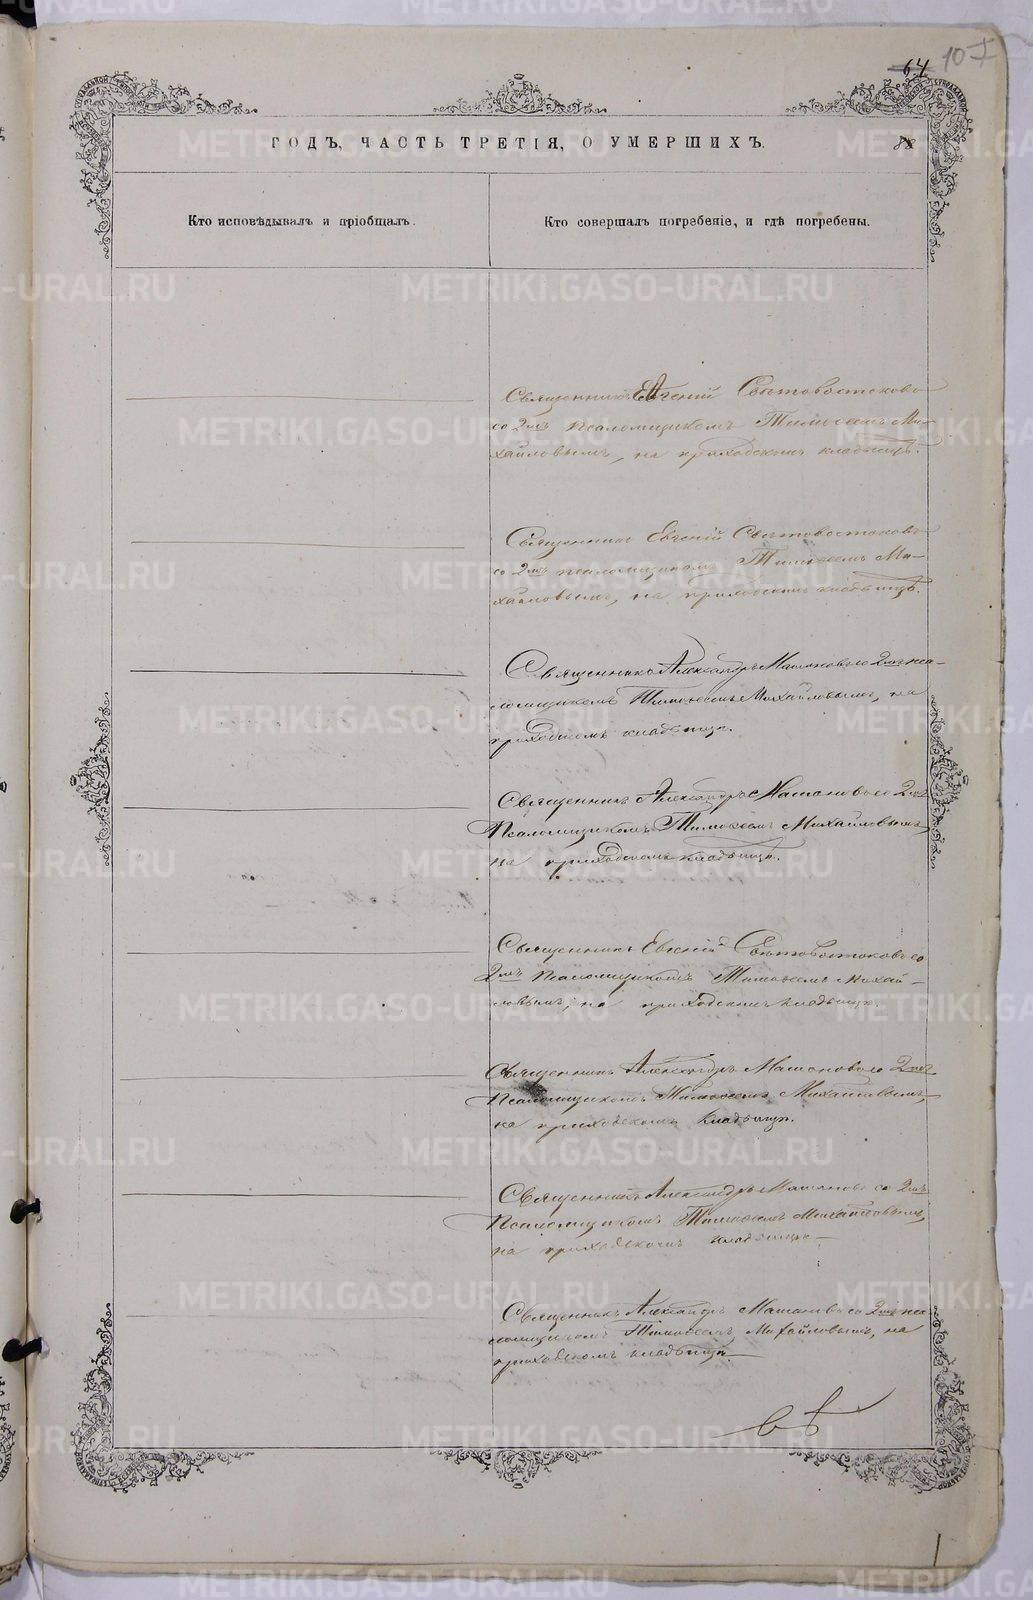 64 107
ГОДЪ, ЧАСТЬ ТРЕТІЯ, О УМЕРШИХЪ.
Кто исповѣдывалъ и пріобщалъ.
Кто совершалъ погребеніе, и гдѣ погребены.
Священникъ Евгеній Свѣтовостоковъ
со 2мъ псаломщикомъ Тимоѳеемъ Ми-
хайловымъ, на приходскомъ кладбищѣ.
Священникъ Евгеній Свѣтовостоковъ
со 2мъ псаломщикомъ Тимоѳеемъ Ми-
хайловымъ, на приходскомъ кладбищѣ.
Священникъ Александръ Машановъ со 2мъ пса-
ломщикомъ Тимоѳеемъ Михайловымъ, на
приходскомъ кладбищѣ.
Священникъ Александръ Машановъ со 2мъ
Псаломщикомъ Тимоѳеемъ Михайловымъ,
на приходскомъ кладбищѣ.
Священникъ Евгеній Свѣтовостоковъ со
2мъ Псаломщикомъ Тимоѳеемъ Михай-
ловымъ, на приходскомъ кладбищѣ.
Священникъ Александръ Машановъ со 2мъ
Псаломщикомъ Тимоѳеемъ Михайловымъ,
на приходскомъ кладбищѣ.
Священникъ Александръ Машановъ со 2мъ
Псаломщикомъ Тимоѳеемъ Михайловымъ,
на приходскомъ кладбищѣ
Священникъ Александръ Машановъ со 2мъ пса-
ломщикомъ Тимоѳеемъ Михайловымъ, на
приходскомъ кладбищѣ
METRIKI.GASO-URAL.RU